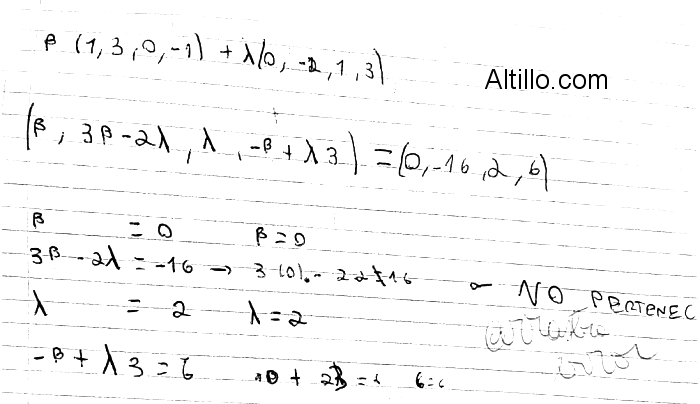 β (1, 3, 0, -1) + λ(0, -2, 1, 3)
Altillo.com
(β, 3β-2λ, λ, -β+λ3) = (0, -16, 2, 6)
β = 0 β = 0
3β - 2λ = -16 → 3(0) - 2 2 ≠ 16 NO PERTENEC
λ = 2 λ = 2
error
-β + λ3 = 6 0 + 23 = 6 6 =